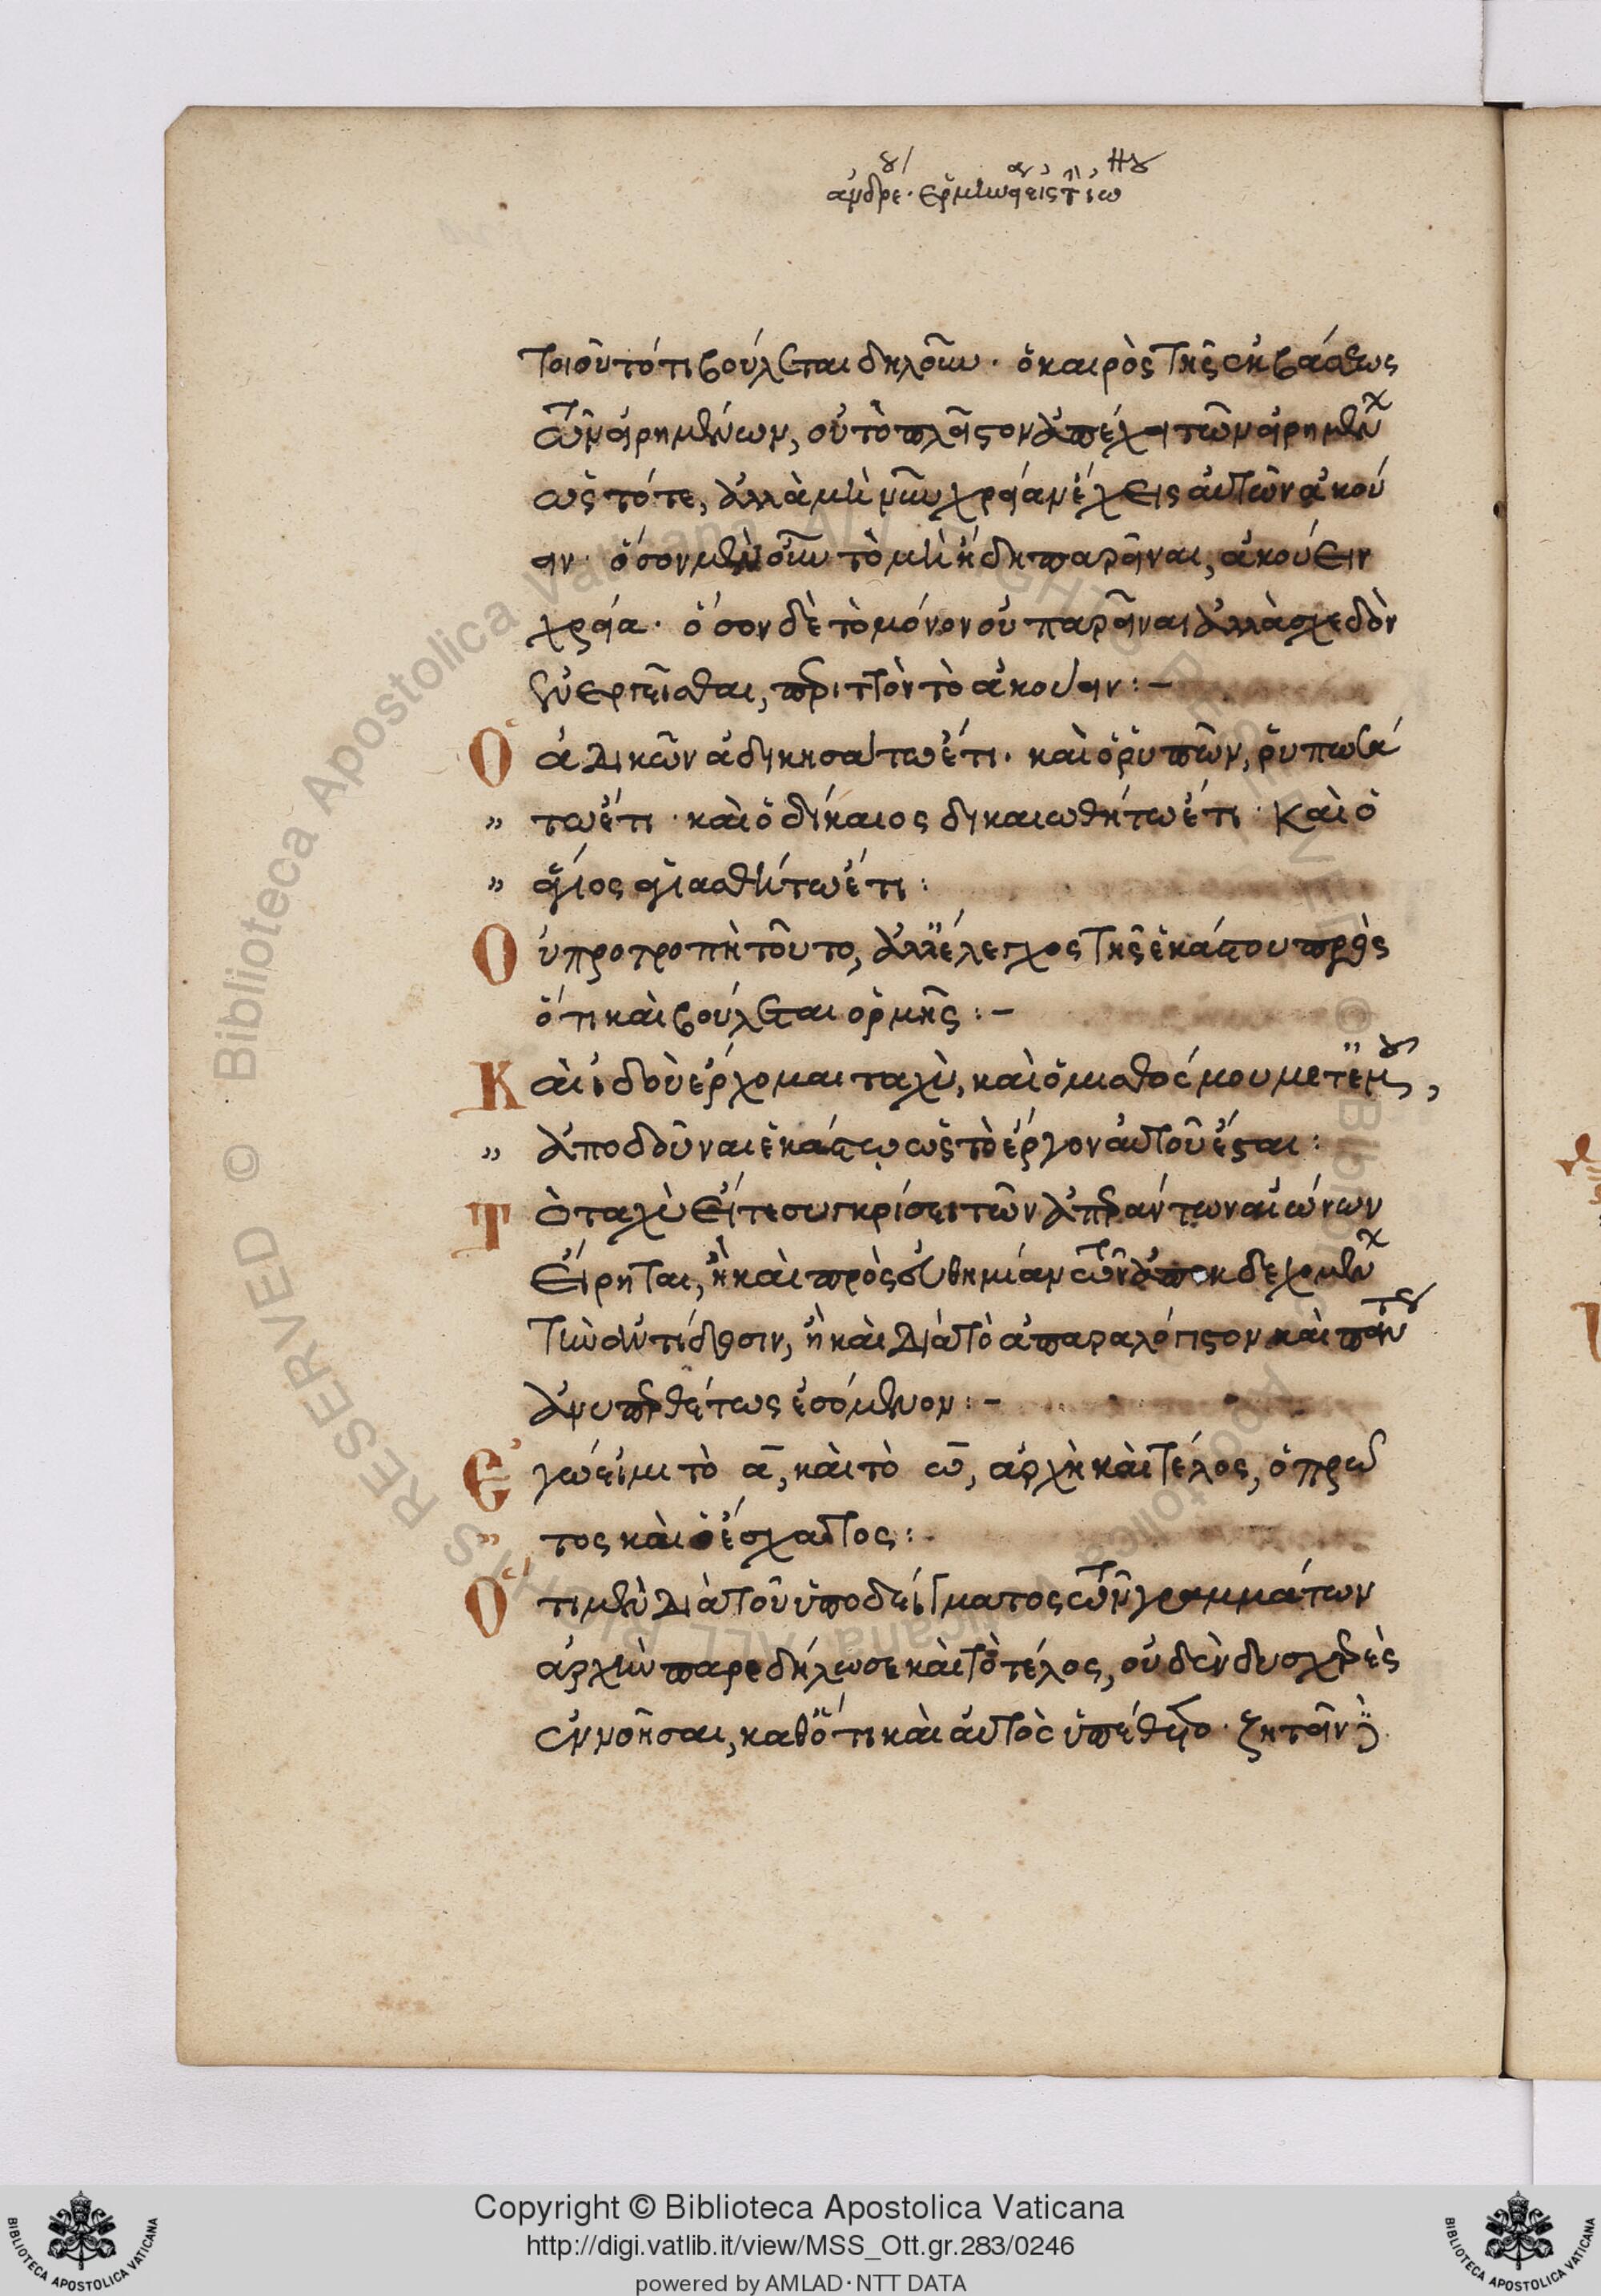 ἀνδρέου ἑρμηνεία εἰς τὴν ἰω
τοιοῦτό τι βούλεται δηλοῦν· ὁ καιρὸς τῆς ἐκβάσεως
τῶν εἰρημένων, οὐ τὸ πλεῖστον ἀπέχει τῶν εἰρημένων
ὡς τότε, ἀλλὰ μὴ νῦν χρείαν ἔχεις αὐτῶν ἀκού
ειν· ὅσον μὲν οὖν τὸ μὴ ἤδη παρεῖναι, ἀκούειν
χρεία· ὅσον δὲ τὸ μόνον οὐ παρεῖναι ἀλλὰ σχεδὸν
περιττὸν τὸ ἀκούειν:-
Ὁ ἀδικῶν ἀδικησάτω ἔτι· καὶ ὁ ῥυπῶν, ῥυπωσά
" τω ἔτι· καὶ ὁ δίκαιος δικαιωθήτω ἔτι· καὶ ὁ
" ἅγιος ἁγιασθήτω ἔτι:
Οὐ προτροπὴ τοῦτο, ἀλλ' ἔλεγχος τῆς ἑκάστου πρὸς
ὅτι καὶ βούλεται ὁρμῆς:-
Καὶ ἰδοὺ ἔρχομαι ταχὺ, καὶ ὁ μισθός μου μετ' ἐμοῦ,
" ἀποδοῦναι ἑκάστῳ ὡς τὸ ἔργον αὐτοῦ ἔσται:
Τὸ ταχὺ εἴτε συγκρίσει τῶν ἀπεράντων αἰώνων
εἴρηται, ἢ καὶ πρὸς οὐδεμίαν τῶν ἀπεκδεχομένων
τὴν ἀντίθεσιν, ἢ καὶ διὰ τὸ ἀπαραλόγιστον καὶ πάντως
ἀνυπερθέτως ἐσόμενον:-
Ἐγώ εἰμι τὸ α, καὶ τὸ ω, ἀρχὴ καὶ τέλος, ὁ πρῶ
" τος καὶ ὁ ἔσχατος:-
Ὅτι μὲν διὰ τοῦ ὑποδείγματος τῶν γραμμάτων
ἀρχὴν παρεδήλωσε καὶ τὸ τέλος, οὐδὲν δυσχερὲς
ἐννοῆσαι, καθότι καὶ αὐτὸς ὑπέθετο· ζητεῖν
Copyright © Biblioteca Apostolica Vaticana
http://digi.vatlib.it/view/MSS_Ott.gr.283/0246
powered by AMLAD·NTT DATA